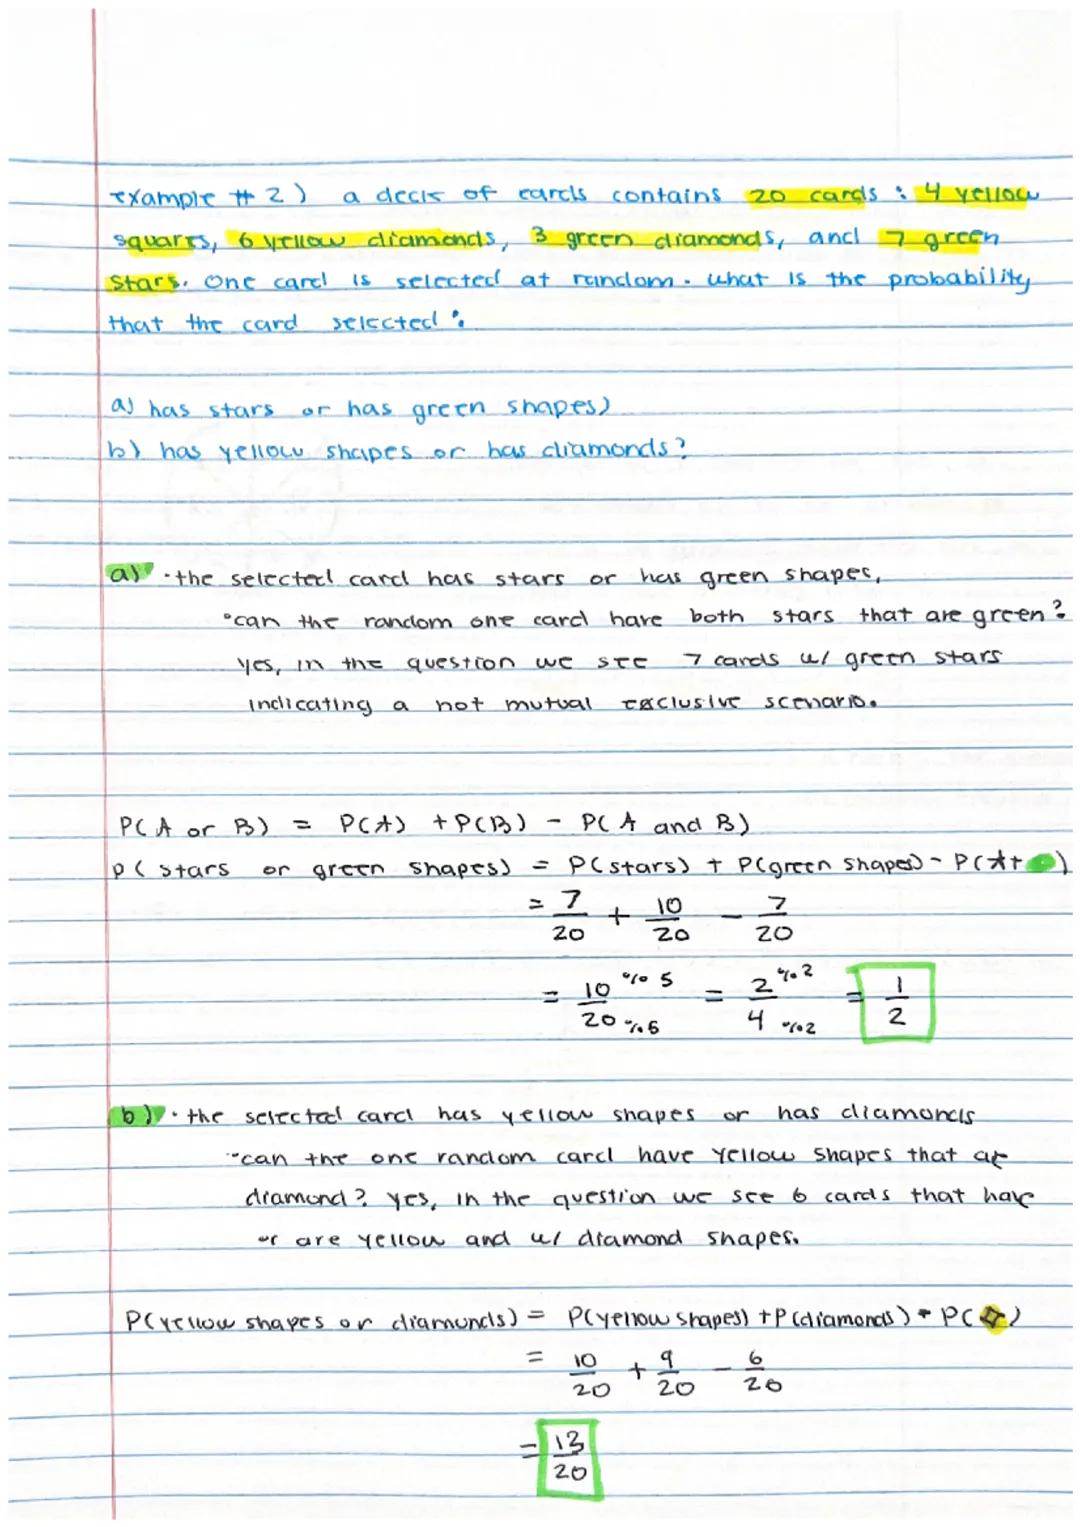 example # 2) a deck of cards contains 20 cards : 4 yellow
squares, 6 yellow diamonds, 3 green diamonds, and 7 green
stars. One card is selected at random. what is the probability
that the card selected :
a) has stars or has green shapes)
b) has yellow shapes or has diamonds?
a) · the selected card has stars or has green shapes,
°can the random one card have both stars that are green?
yes, in the question we see 7 cards w/ green stars
indicating a not mutual exclusive scenario.
P(A or B) = P(A) + P(B) - P(A and B)
P(stars or green shapes) = P(stars) + P(green shapes) - P(☆+)
= 7/20 + 10/20 - 7/20
= 10 ÷ 5 / 20 ÷ 5 = 2 ÷ 2 / 4 ÷ 2 = 1/2
b) · the selected card has yellow shapes or has diamonds
°can the one random card have yellow shapes that are
diamond? yes, in the question we see 6 cards that have
or are yellow and w/ diamond shapes.
P(yellow shapes or diamonds) = P(yellow shapes) + P(diamonds) - P(◇)
= 10/20 + 9/20 - 6/20
= 13/20